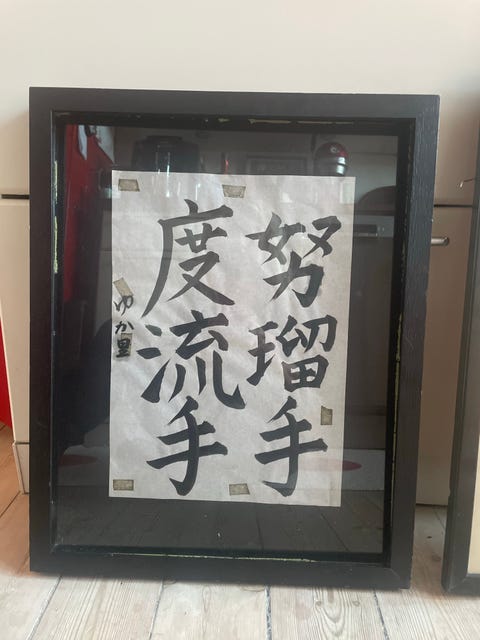 努瑠手
度流手
ゆか里